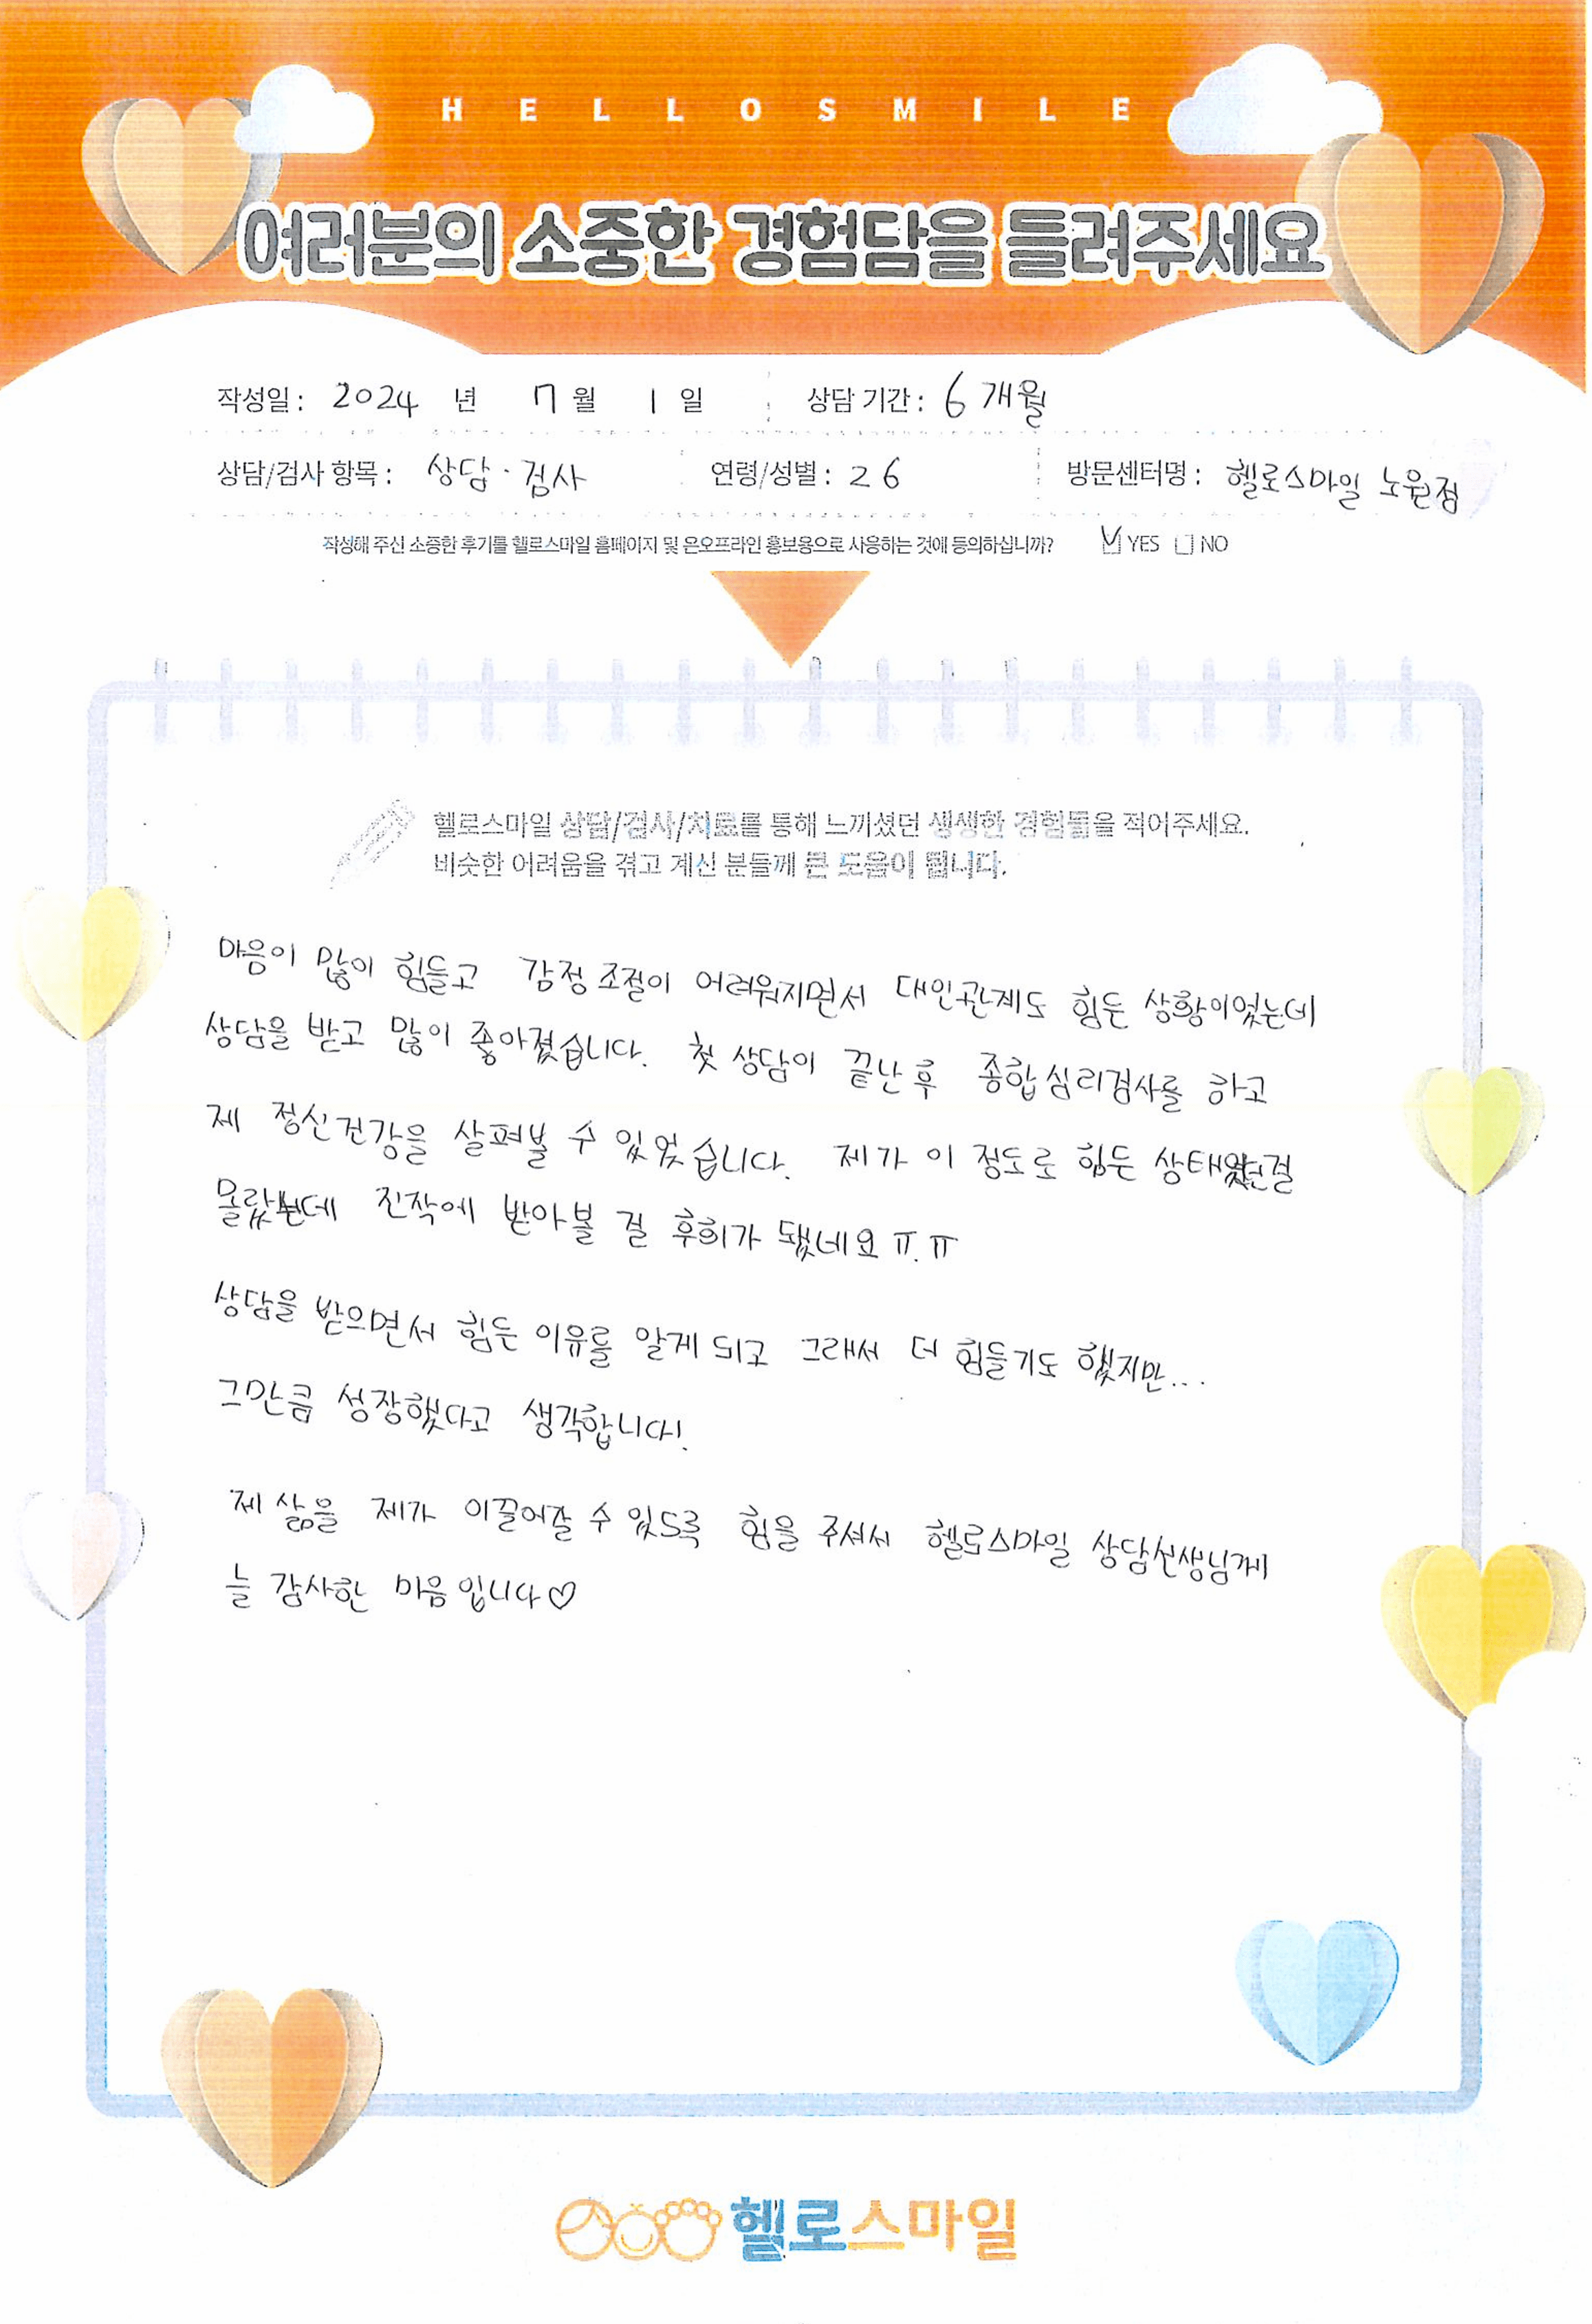 HELLOSMILE
여러분의 소중한 경험담을 들려주세요
작성일 : 2024 년 7 월 1 일 상담 기간 : 6 개월
상담/검사 항목 : 상담 · 검사 연령/성별 : 26 방문센터명 : 헬로스마일 노원점
작성해 주신 소중한 후기를 헬로스마일 홈페이지 및 온오프라인 홍보용으로 사용하는 것에 동의하십니까? ☑ YES ☐ NO
헬로스마일 상담/검사/치료를 통해 느끼셨던 생생한 경험들을 적어주세요.
비슷한 어려움을 겪고 계신 분들께 큰 도움이 됩니다.
마음이 많이 힘들고 감정 조절이 어려워지면서 대인관계도 힘든 상황이었는데
상담을 받고 많이 좋아졌습니다. 첫 상담이 끝난 후 종합심리검사를 하고
제 정신건강을 살펴볼 수 있었습니다. 제가 이 정도로 힘든 상태였던걸
몰랐는데 진작에 받아볼 걸 후회가 됐네요 ㅠ.ㅠ
상담을 받으면서 힘든 이유를 알게 되고 그래서 더 힘들기도 했지만...
그만큼 성장했다고 생각합니다!
제 삶을 제가 이끌어갈 수 있도록 힘을 주셔서 헬로스마일 상담선생님께
늘 감사한 마음입니다♡
헬로스마일